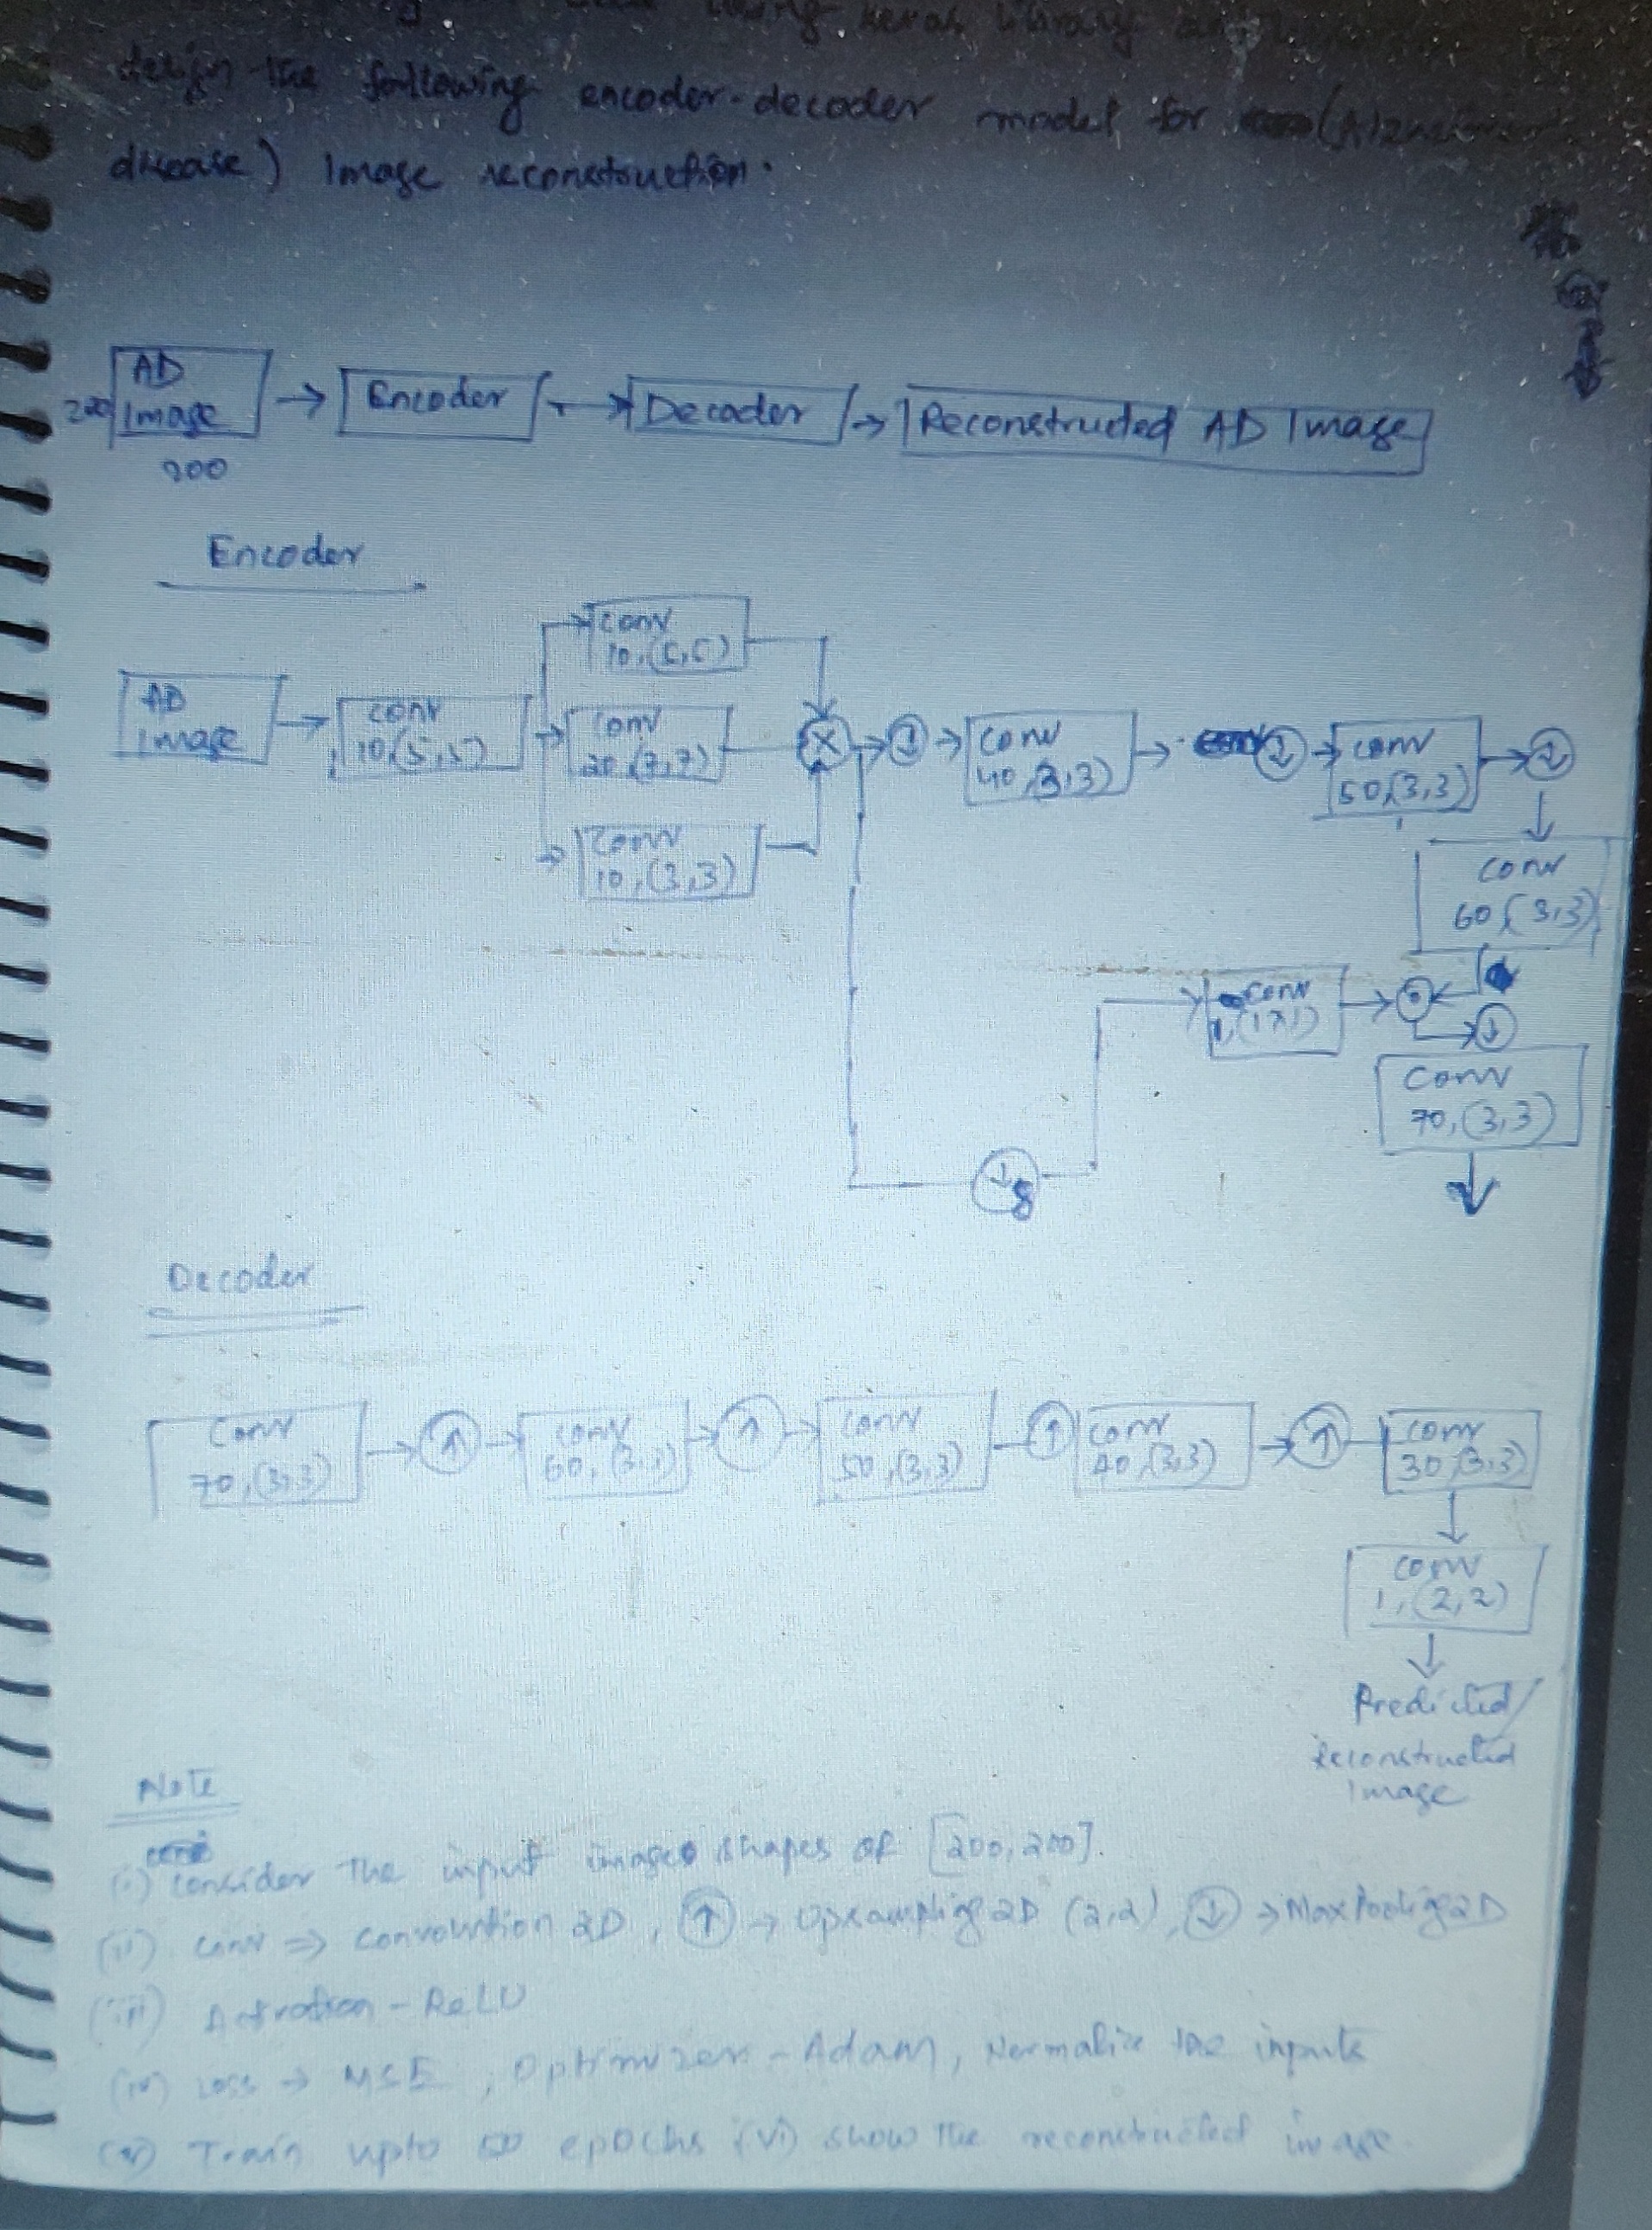 using keras library
design the following encoder-decoder model for
disease) Image reconstruction.
AD Image
200
200
Encoder
Decoder
Reconstructed AD Image
Encoder
AD Image
Conv 10,(5,5)
Conv 10,(5,5)
Conv 20,(7,7)
Conv 10,(3,3)
×
↓
Conv 40,(3,3)
↓
Conv 50,(3,3)
↓
Conv 60,(3,3)
Conv 1,(1×1)
↓
Conv 70,(3,3)
↓8
Decoder
Conv 70,(3,3)
↑
Conv 60,(3,3)
↑
Conv 50,(3,3)
↑
Conv 40,(3,3)
↑
Conv 30,(3,3)
Conv 1,(2,2)
Predicted/
Reconstructed
Image
Note
(i) Consider the input images shapes of [200,200].
(ii) Conv ⇒ Convolution 2D, ↑ → Upsampling 2D (2,2), ↓ → MaxPooling 2D
(iii) Activation - ReLU
(iv) Loss → MSE, Optimizer - Adam, Normalize the inputs
(v) Train upto 50 epochs (vi) show the reconstructed image.